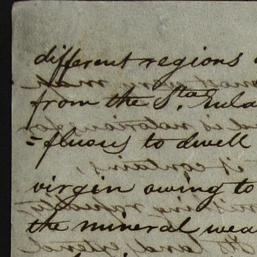 different regions
from the Sta. Eula
=fluous to dwell
virgin owing to
the mineral wea